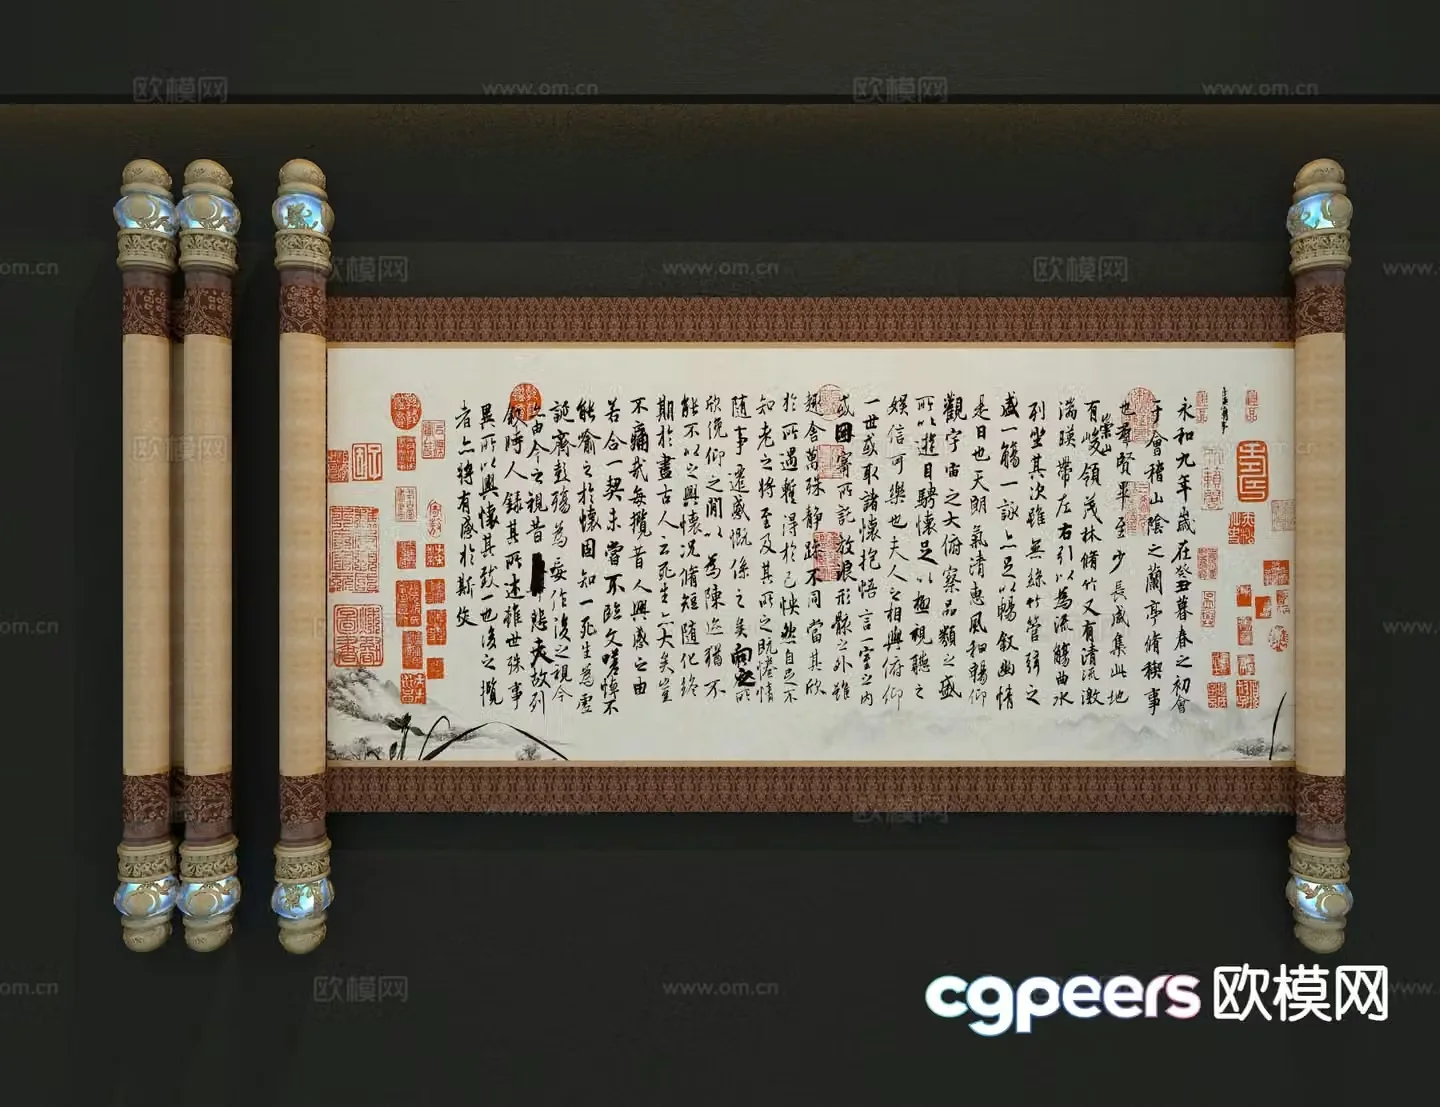 永和九年歲在癸丑暮春之初會
于會稽山陰之蘭亭脩稧事
也羣賢畢至少長咸集此地
有崇山峻領茂林脩竹又有清流激
湍暎帶左右引以為流觴曲水
列坐其次雖無絲竹管弦之
盛一觴一詠亦足以暢敘幽情
是日也天朗氣清惠風和暢仰
觀宇宙之大俯察品類之盛
所以遊目騁懷足以極視聽之
娛信可樂也夫人之相與俯仰
一世或取諸懷抱悟言一室之內
或因寄所託放浪形骸之外雖
趣舍萬殊靜躁不同當其欣
於所遇暫得於己怏然自足不
知老之將至及其所之既惓情
隨事遷感慨係之矣向之所
欣俛仰之間以為陳迹猶不
能不以之興懷況脩短隨化終
期於盡古人云死生亦大矣豈
不痛哉每攬昔人興感之由
若合一契未嘗不臨文嗟悼不
能喻之於懷固知一死生為虛
誕齊彭殤為妄作後之視今
亦由今之視昔悲夫故列
敘時人錄其所述雖世殊事
異所以興懷其致一也後之攬
者亦將有感於斯文
cgpeers 欧模网
欧模网
www.om.cn